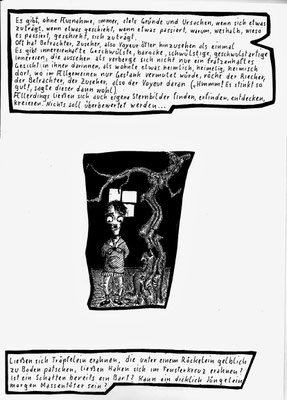 Es gibt, ohne Ausnahme, immer, stets Gründe und Ursachen, wenn sich etwas
zuträgt, wenn etwas geschieht, wenn etwas passiert, warum, weshalb, wieso
es passiert, geschieht, sich zuträgt.
Oft hat Betrachter, Zuseher, also Voyeur öfter hinzusehen als einmal
Es gibt innereienhafte Geschwülste, barocke, schwülstige, geschwulstartige
Innereien, die aussehen als verberge sich nicht nur ein fratzenhaftes
Gesicht in ihnen darinnen, als wohnte etwas heimlich, heimelig, heimisch
dort, wo im Allgemeinen nur Gestank vermutet würde, röche der Riecher,
der Betrachter, der Zuseher, also der Voyeur daran („Hmmm! Es stinkt so
gut!, sagte dieser dann wohl)
Allerdings ließen sich auch eigene Sternbilder finden, erfinden, entdecken,
kreieren. Nichts soll überbewertet werden...
Ließen sich Tröpfelein erahnen, die unter einem Röckelein gelblich
zu Boden patschen, ließen Haken sich im Fensterkreuz erahnen?
Ist ein Schatten bereits ein Bart? Kann ein dicklich Jüngelein
morgen Massentöter sein?